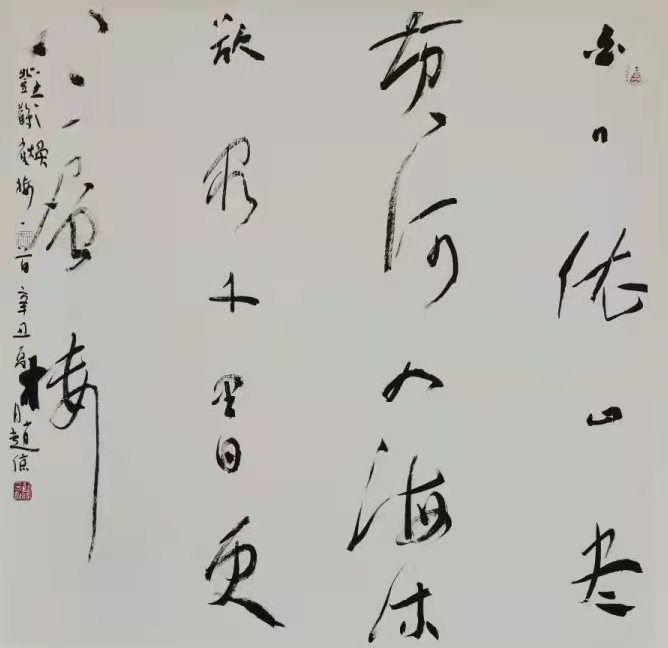 白日依山尽
黄河入海流
欲穷千里目更
上一層楼
登鹳雀楼一首辛丑 月趙